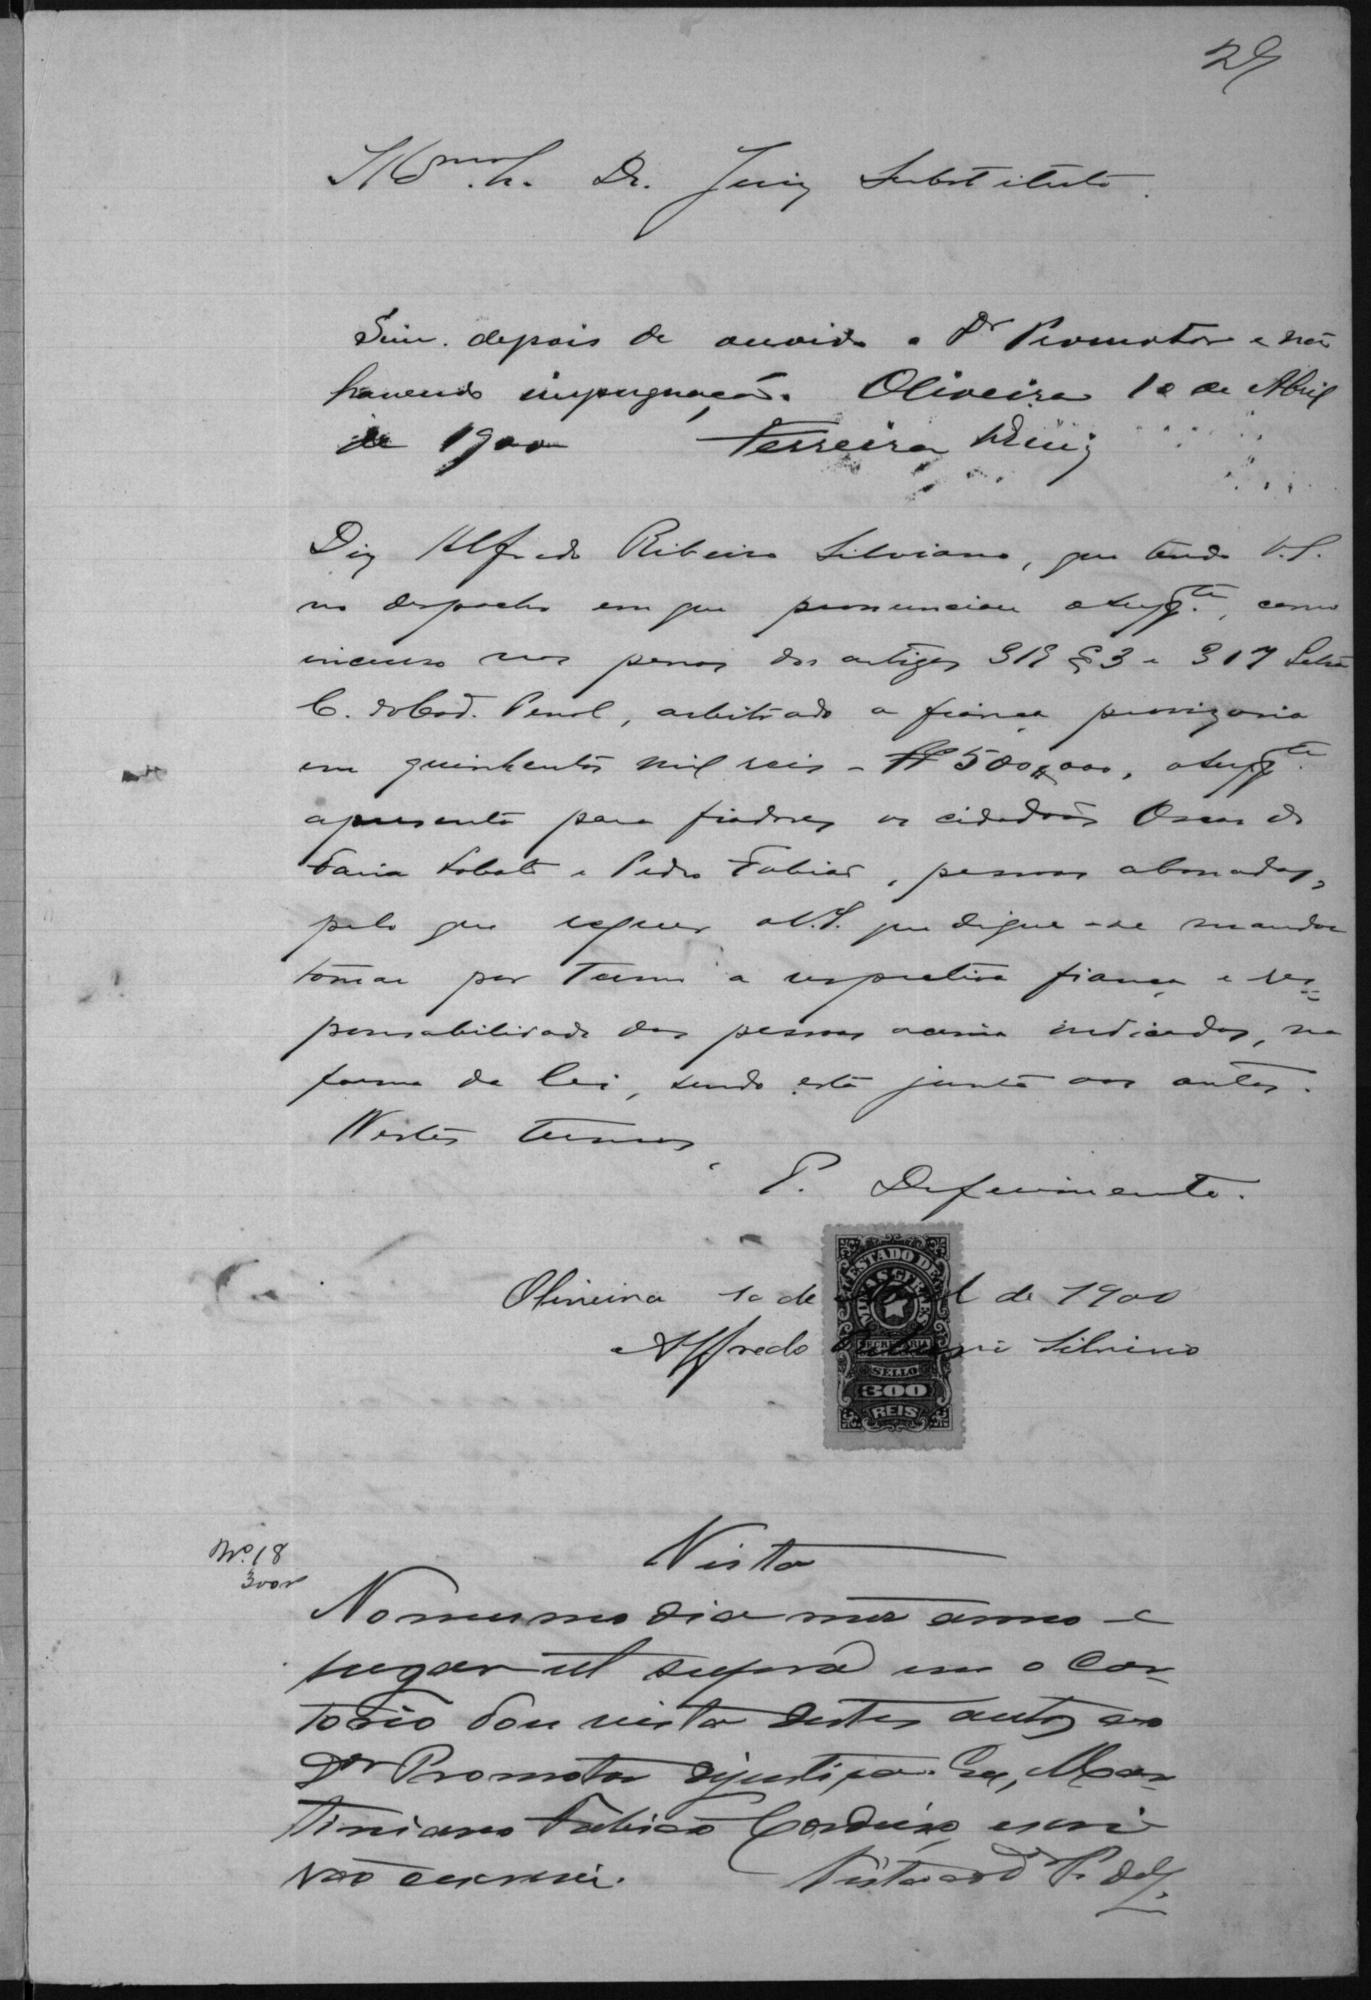 29
Illmo. Sr. Dr. Juiz Substituto.
Sim. depois de ouvido o Dr Promotor e não
havendo impugnação. Oliveira 10 de Abril
de 1900 Ferreira Diniz
Diz Alfredo Ribeiro Silviano, que tendo V.S.
no despacho em que pronunciou o suppte., como
incurso nas penas dos artigos 319 § 3 e 317 Letra
C. do Cod. Penal, arbitrado a fiança provizoria
em quinhentos mil reis - Rs 500$000, o suppte.
apresenta para fiadores os cidadãos Oscar de
Faria Lobato e Pedro Fabião, pessoas abonadas,
pelo que requer a V.S. que digne-se mandar
tomar por termo a respectiva fiança e res-
ponsabilidade das pessoas acima indicadas, na
forma da lei, sendo esta junta aos autos.
Nestes termos,
P. Deferimento.
Oliveira 10 de Abril de 1900
Alfredo Ribeiro Silvino
ESTADO DE
MINAS GERAES
SECRETARIA
SELLO
300
REIS
No. 18
300 r
Vista
No mesmo dia mez anno e
lugar ut supra em o car-
torio dou vista destes autos ao
Dr Promotor d justiça. Eu, Mar-
tiniano Fabião Cardozo, escri
vão escrevi.